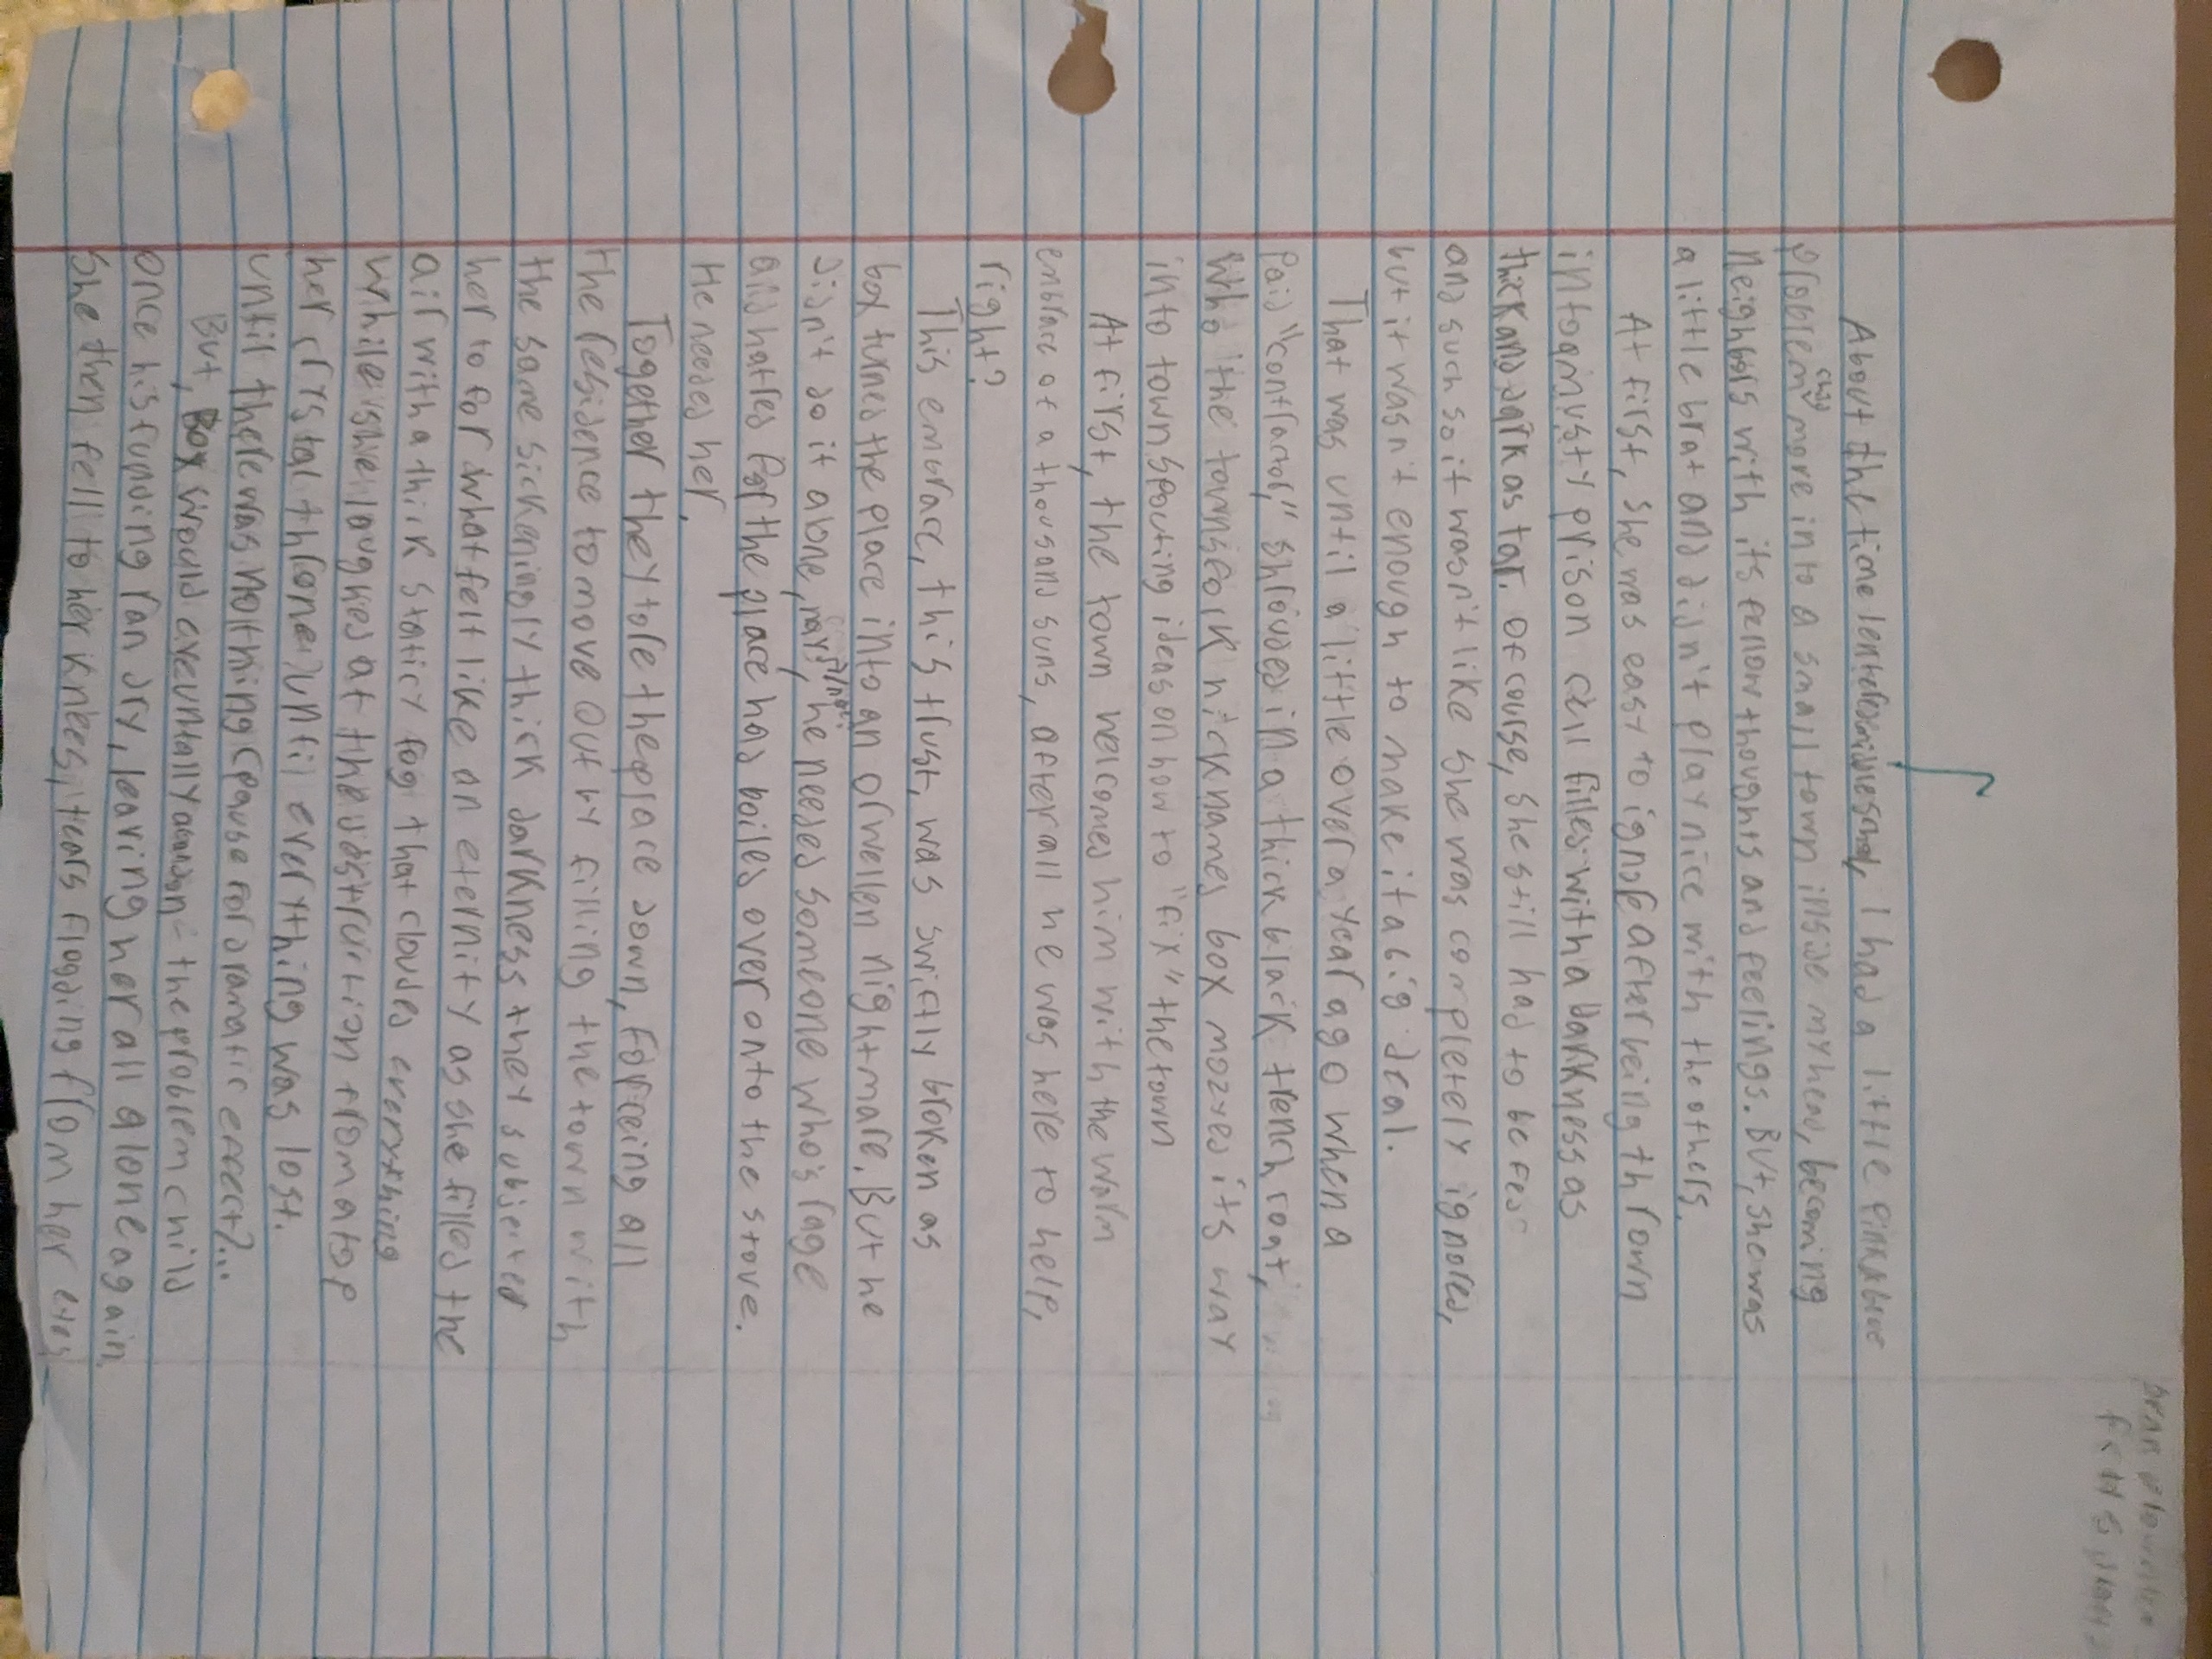 About the time I entered middle school, I had a little pink & blue
problem child move into a small town inside my head, becoming
neighbors with its fellow thoughts and feelings. But, she was
a little brat and didn't play nice with the others.
At first, she was easy to ignore after being thrown
into a musty prison cell filled with a darkness as
thick and dark as tar. Of course, she still had to be fed
and such so it wasn't like she was completely ignored,
but it wasn't enough to make it a big deal.
That was until a little over a year ago when a
paid "contractor," shrouded in a thick black trench coat,
who the townsfolk nicknamed box mozyed its way
into town spouting ideas on how to "fix" the town
At first, the town welcomed him with the warm
embrace of a thousand suns, after all he was here to help,
right?
This embrace, this trust, was swiftly broken as
box turned the place into an orwellen nightmare. But he
didn't do it alone, nay, he needed someone who's rage
and hatred for the place had boiled over onto the stove.
He needed her.
Together they tore the place down, forceing all
the residence to move out by filling the town with
the same sickeningly thick darkness they subjected
her to for what felt like an eternity as she filled the
air with a thick staticy fog that clouded everything
while she laughed at the distruction from atop
her crystal throne until everything was lost.
until there was nothing (pause for dramatic effect)...
But, Box would eventually abandon the problem child
once his funding ran dry, leaving her all alone again.
She then fell to her knees, tears flooding from her eyes